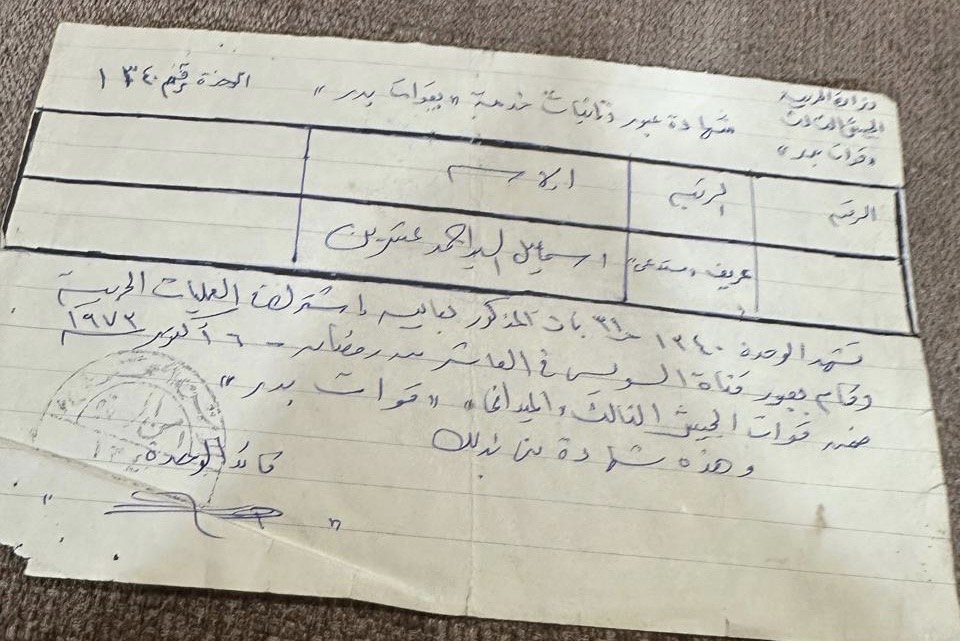 وزارة الحربية
الجيش الثالث
"قوات بدر"
شهادة عبور وإثبات خدمة "بقوات بدر"
الوحدة رقم ١٣٤٠
الرتبه الاسم
عريف "مستدعى" اسماعيل السيد احمد
تشهد الوحدة ١٣٤٠ بأن المذكور بعاليه اشترك العمليات الحربية
وقام بعبور قناة السويس فى العاشر من رمضان - ٦ أكتوبر سنه ١٩٧٣
ضمن قوات الجيش الثالث الميدانى "قوات بدر"
وهذه شهادة منا بذلك
قائد الوحدة